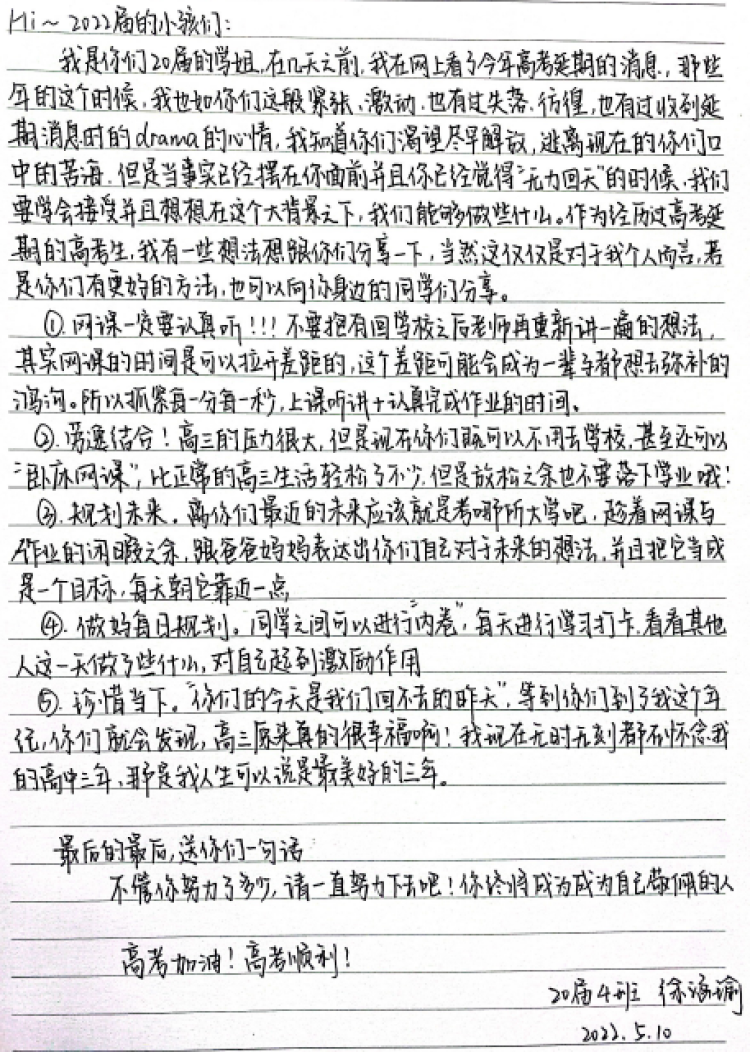 Hi~ 2022届的小孩们:
我是你们20届的学姐,在几天之前,我在网上看了今年高考延期的消息,那些
年的这个时候,我也如你们这般紧张、激动,也有过失落、彷徨,也有过收到延
期消息时的drama的心情,我知道你们渴望尽早解放,逃离现在的你们口
中的苦海,但是当事实已经摆在你面前并且你已经觉得“无力回天”的时候,我们
要学会接受并且想想在这个大背景之下,我们能够做些什么。作为经历过高考延
期的高考生,我有一些想法想跟你们分享一下,当然这仅仅是对于我个人而言,若
是你们有更好的方法,也可以向你身边的同学们分享。
①.网课一定要认真听!!!不要抱有回学校之后老师再重新讲一遍的想法,
其实网课的时间是可以拉开差距的,这个差距可能会成为一辈子都想去弥补的
鸿沟。所以抓紧每一分每一秒,上课听讲+认真完成作业的时间。
②.劳逸结合!高三的压力很大,但是现在你们既可以不用去学校,甚至还可以
“卧床网课”,比正常的高三生活轻松了不少,但是放松之余也不要落下学业哦!
③.规划未来。离你们最近的未来应该就是考哪所大学吧,趁着网课与
作业的闲暇之余,跟爸爸妈妈表达出你们自己对于未来的想法,并且把它当成
是一个目标,每天朝它靠近一点
④.做好每日规划。同学之间可以进行“内卷”,每天进行学习打卡,看看其他
人这一天做了些什么,对自己起到激励作用
⑤.珍惜当下。“你们的今天是我们回不去的昨天”,等到你们到了我这个年
纪,你们就会发现,高三原来真的很幸福啊!我现在无时无刻都在怀念我
的高中三年,那是我人生可以说是最美好的三年。
最后的最后,送你们一句话
不管你努力了多少,请一直努力下去吧!你终将成为成为自己敬佩的人
高考加油!高考顺利!
20届4班 徐
2022.5.10